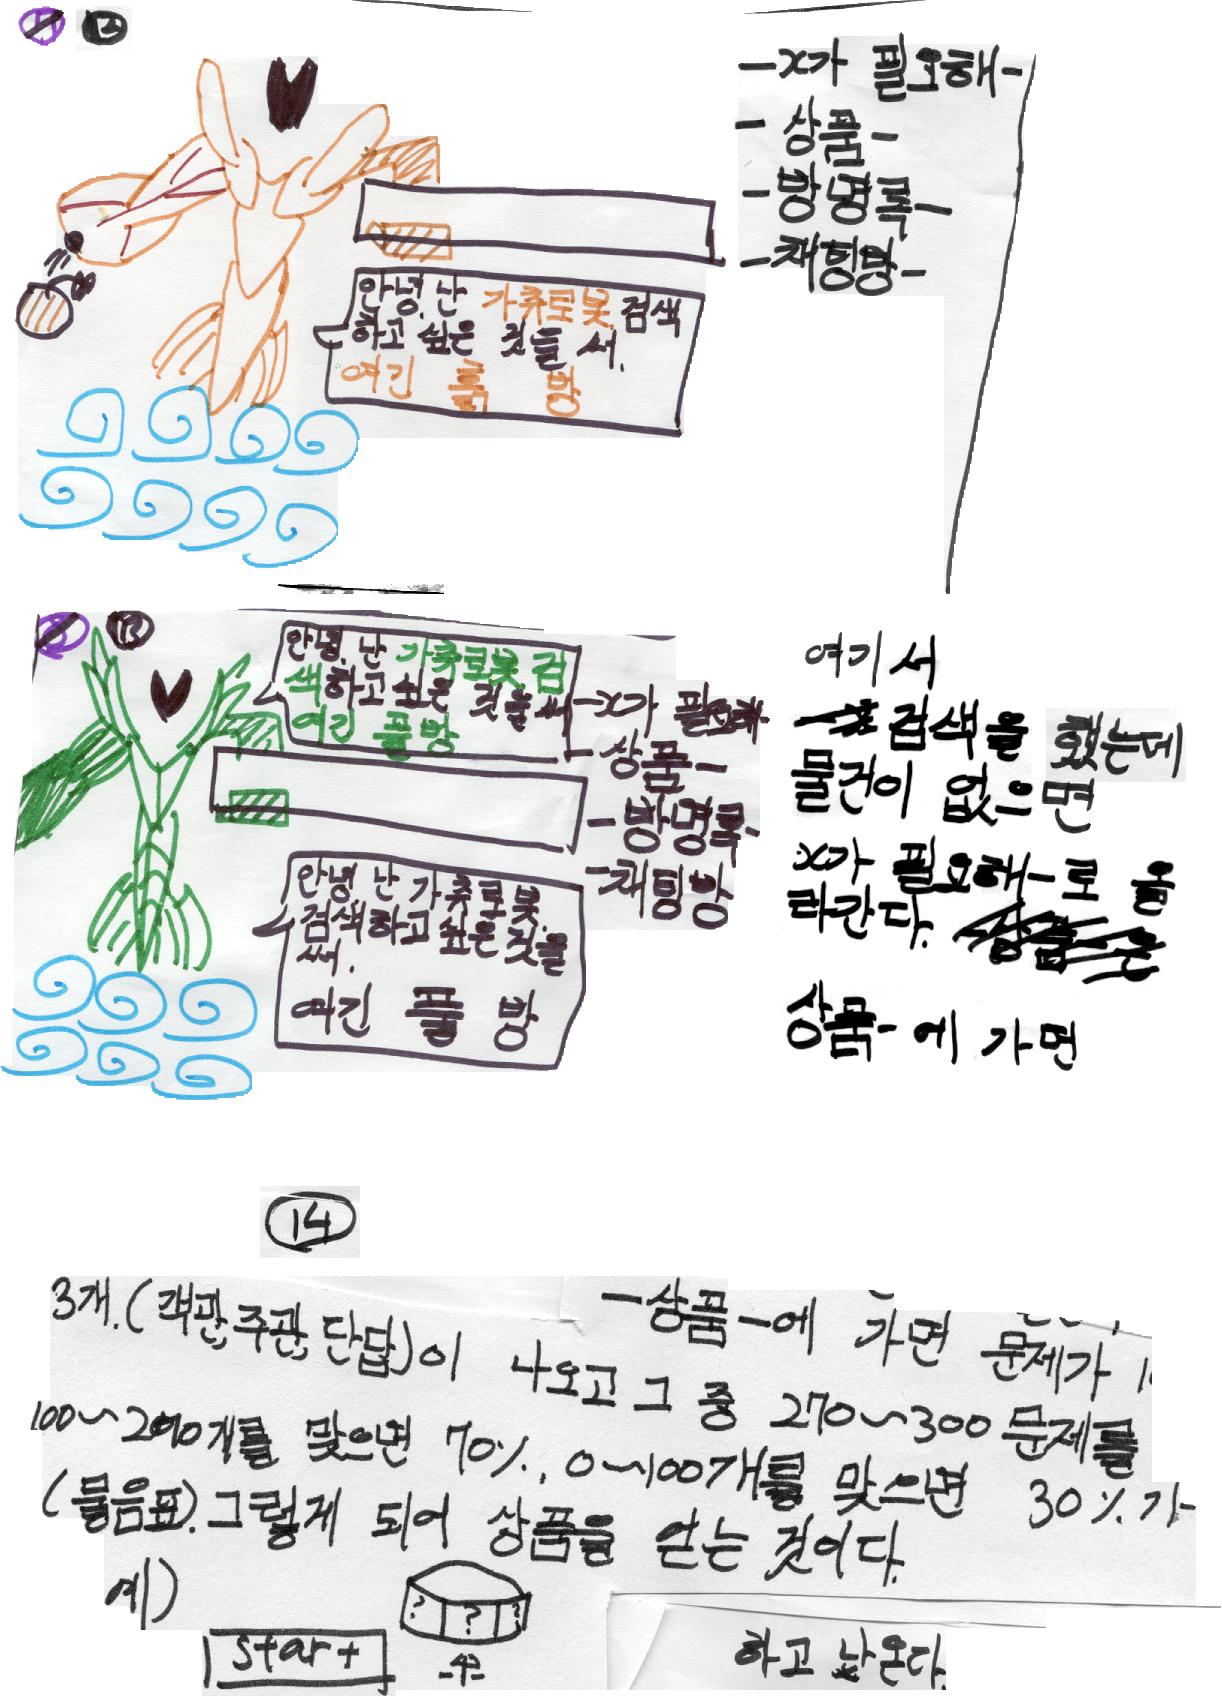 12
-x가 필요해-
-상품-
-방명록-
-채팅방-
안녕, 난 가츄로봇, 검색
하고 싶은 것을 써.
여긴 흙 방
13
안녕, 난 가츄로봇, 검
색하고 싶은 것을 써
여긴 풀방
-x가 필요해-
-상품-
-방명록-
-채팅방
안녕 난 가츄로봇.
검색하고 싶은 것을
써.
여긴 풀 방
여기서
검색을 했는데
물건이 없으면
x가 필요해-로 올
라간다.
상품-에 가면
14
-상품-에 가면 문제가
3개.(객관,주관,단답)이 나오고 그 중 270~300문제를
100~200개를 맞으면 70%, 0~100개를 맞으면 30%가
(물음표).그렇게 되어 상품을 얻는 것이다.
예)
? ? ?
start
하고 나온다.